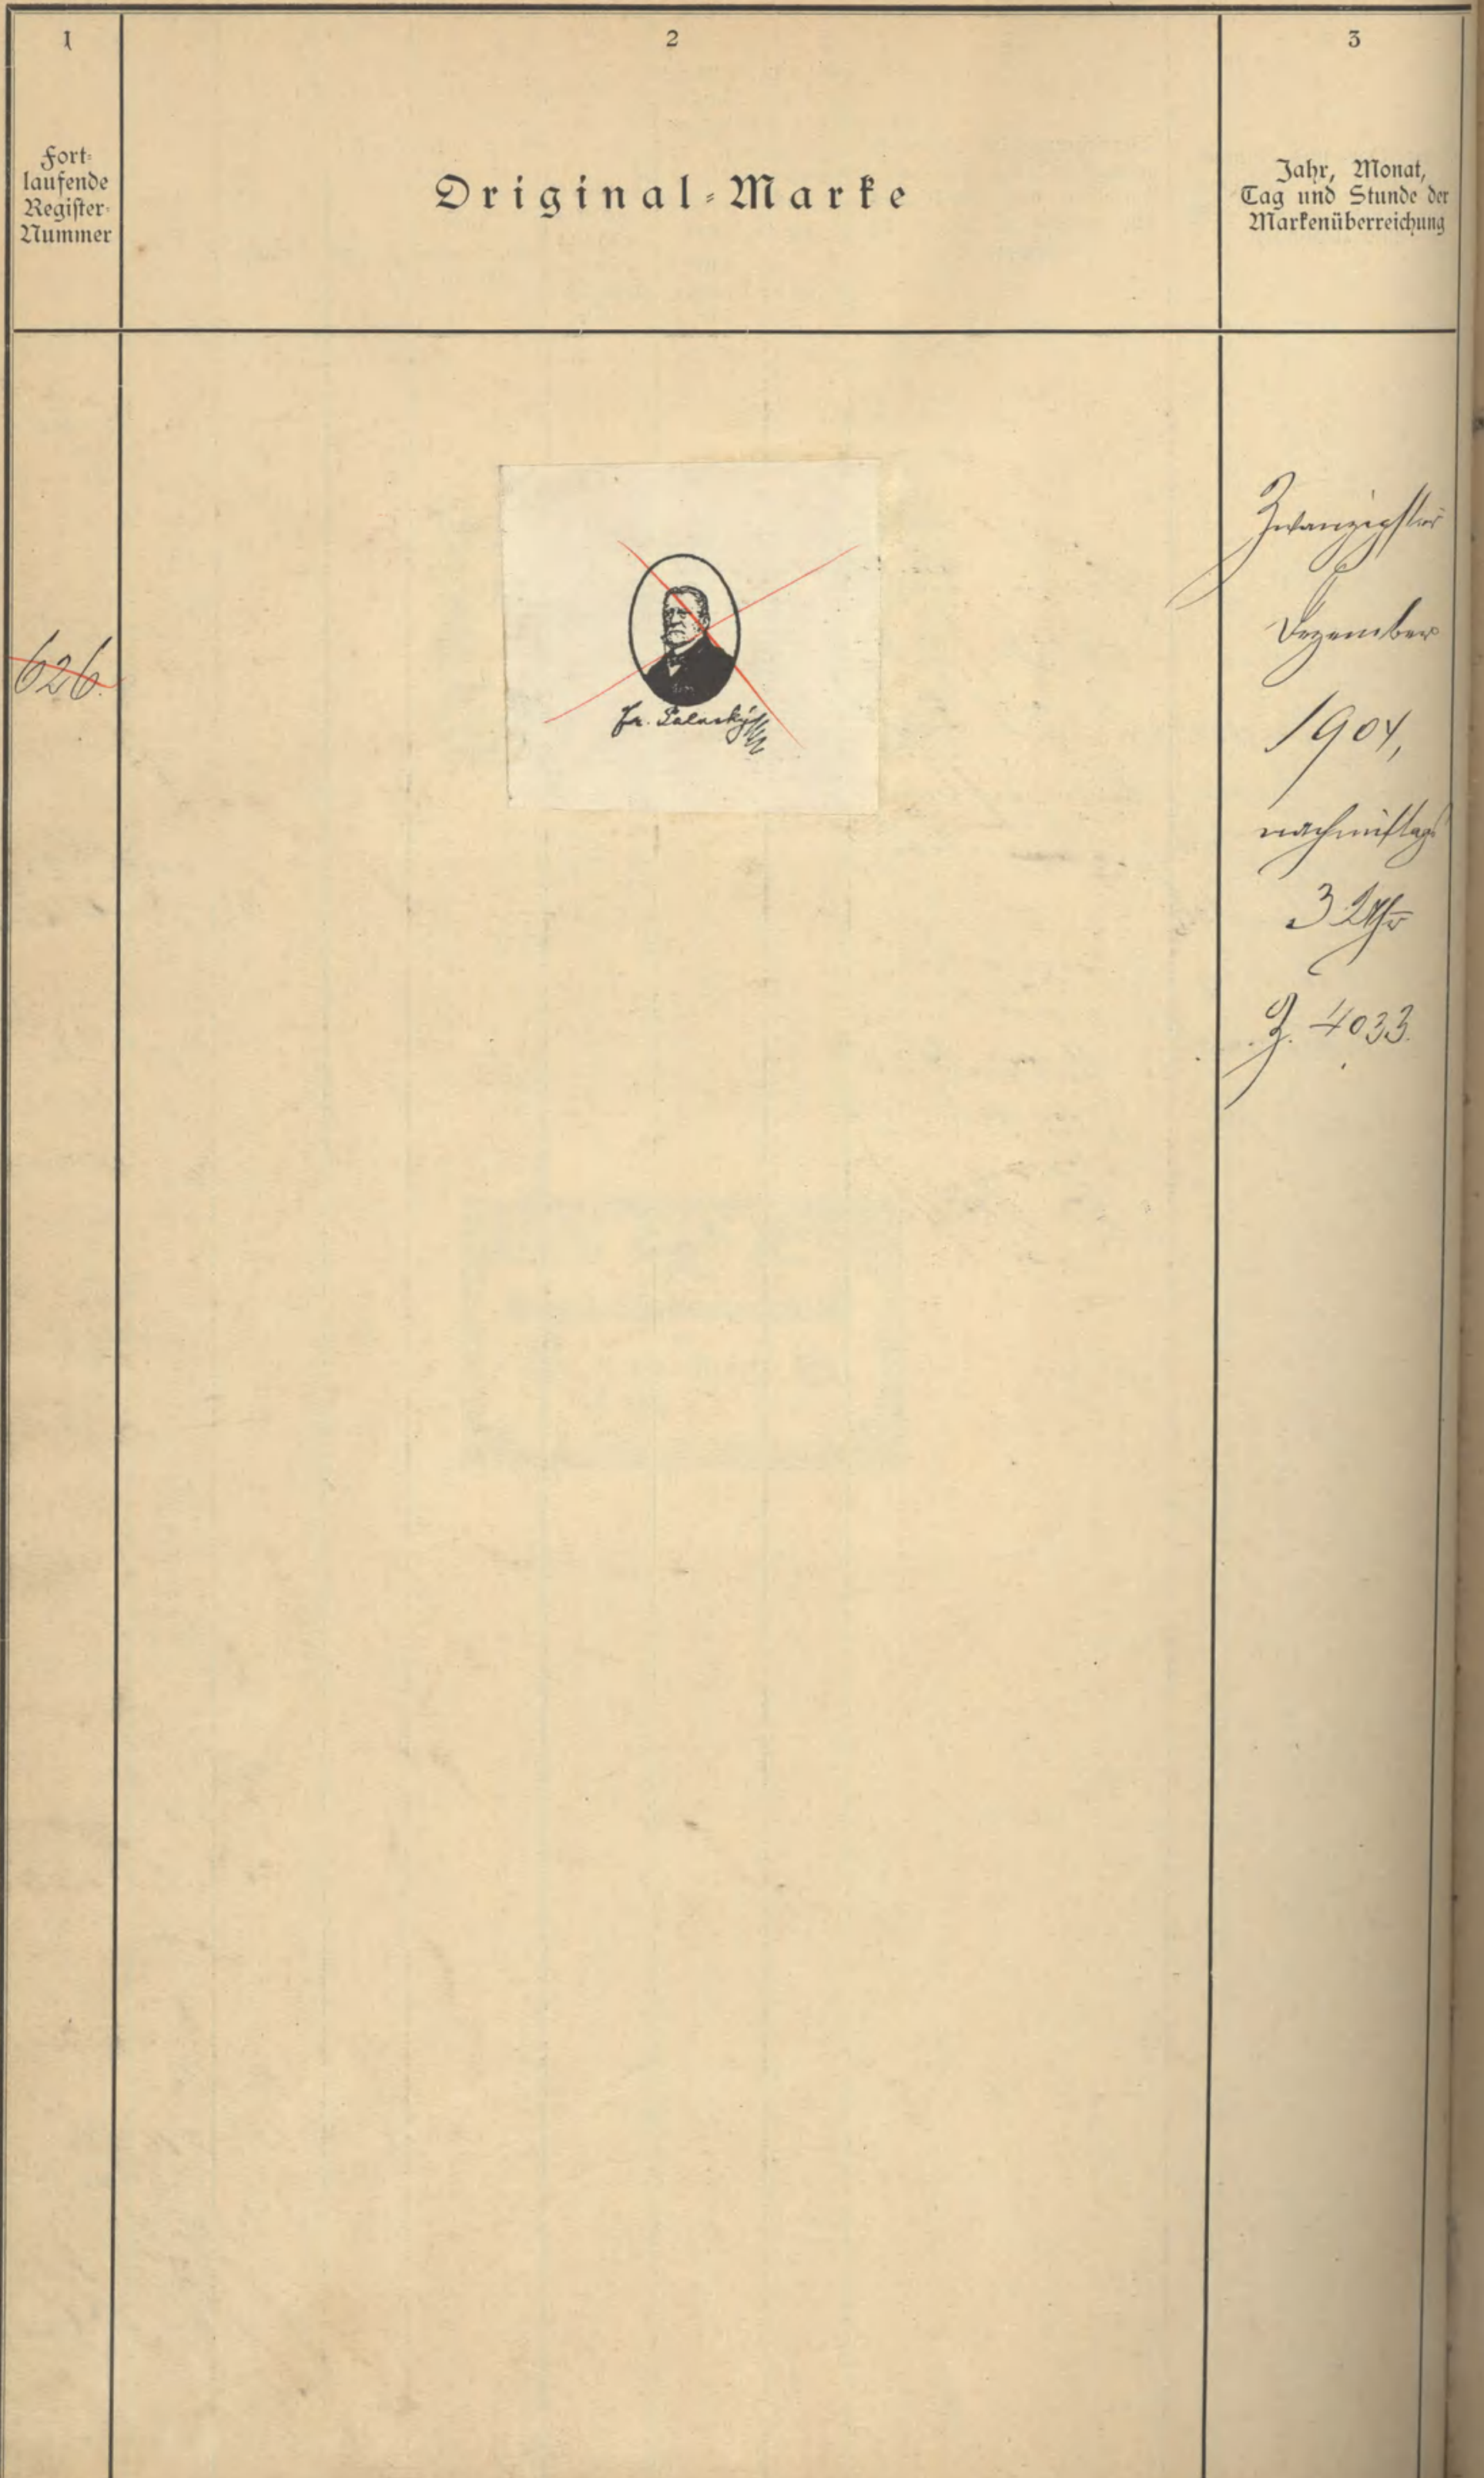 1
2
3
Fort-
laufende
Register-
Nummer
Original-Marke
Jahr, Monat,
Tag und Stunde der
Markenüberreichung
626.
Fr. Palacký
Zwanzigster
Dezember
1904,
nachmittags
3 Uhr
Z. 4033.